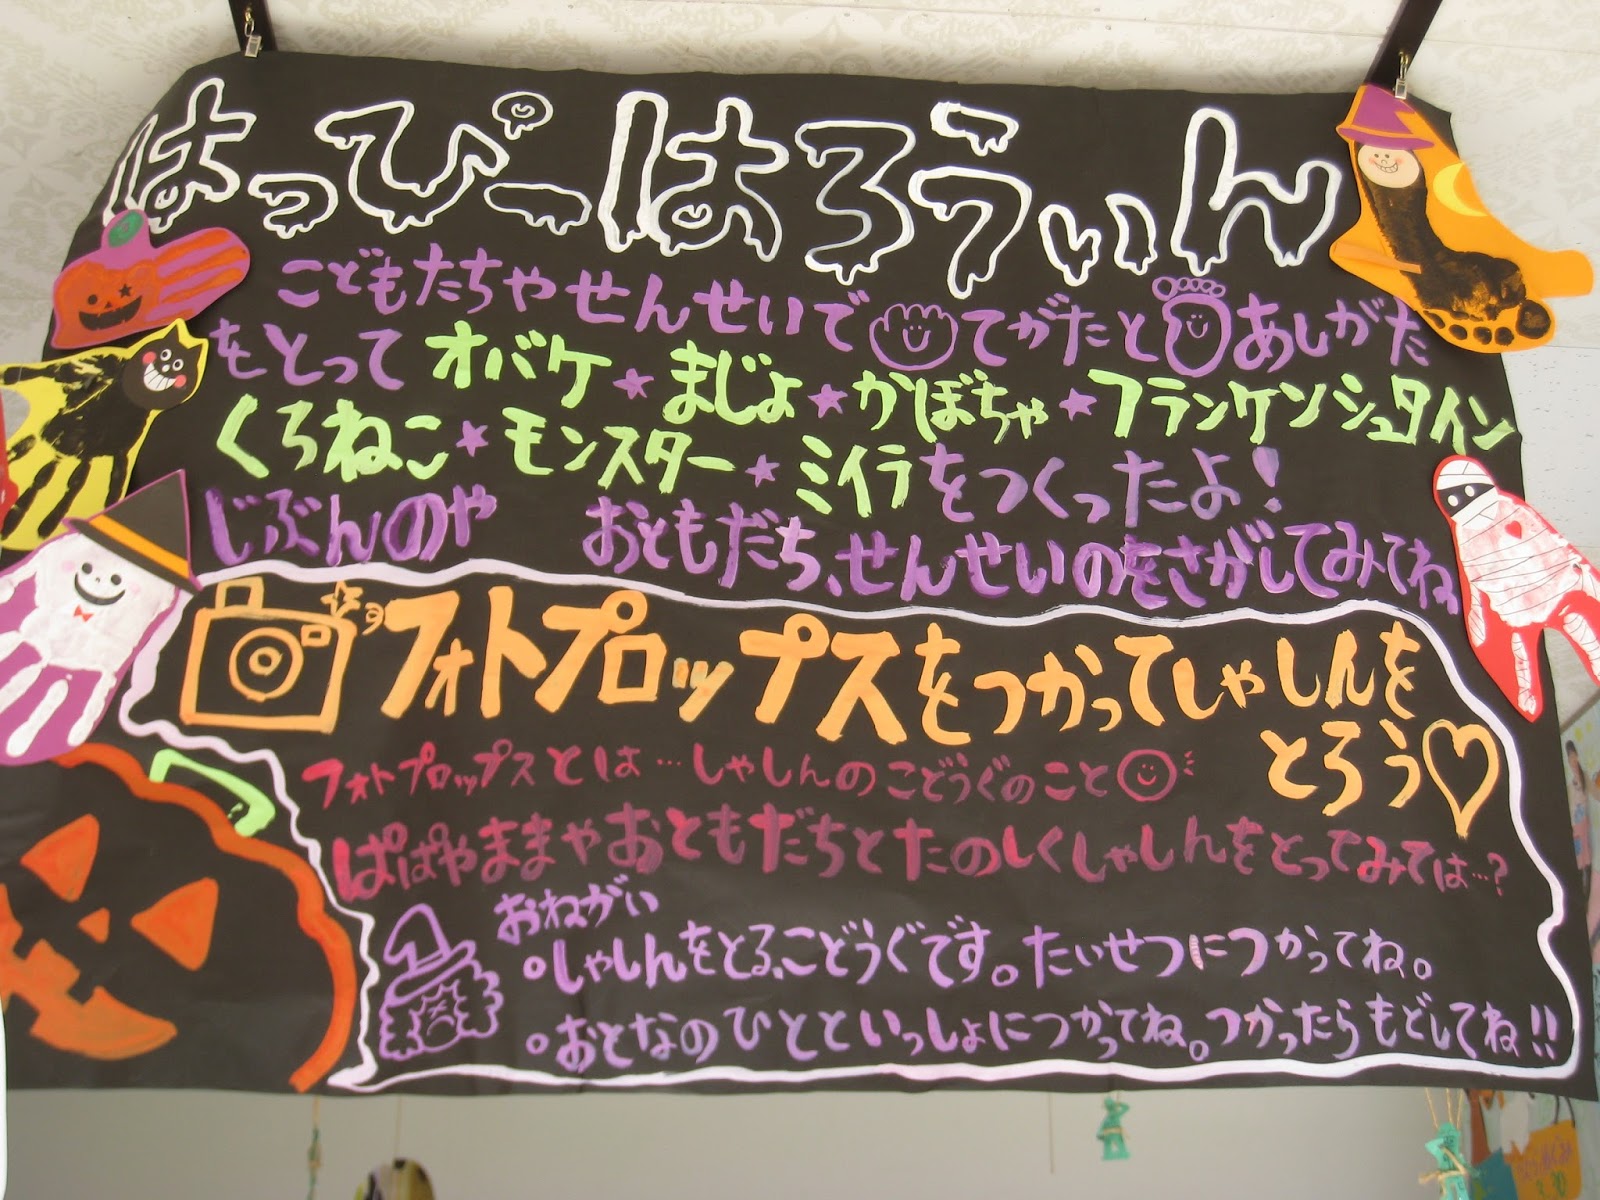 はっぴーはろうぃん
こどもたちやせんせいで てがたと あしがた
をとって オバケ★まじょ★かぼちゃ★フランケンシュタイン
くろねこ★モンスター★ミイラをつくったよ！
じぶんのや おともだち、せんせいのをさがしてみてね
フォトプロップスをつかってしゃしんを
とろう♡
フォトプロップスとは…しゃしんのこどうぐのこと
ぱぱやままやおともだちとたのしくしゃしんをとってみては…？
おねがい
。しゃしんをとる、こどうぐです。たいせつにつかってね。
。おとなのひとといっしょにつかってね。つかったらもどしてね！！